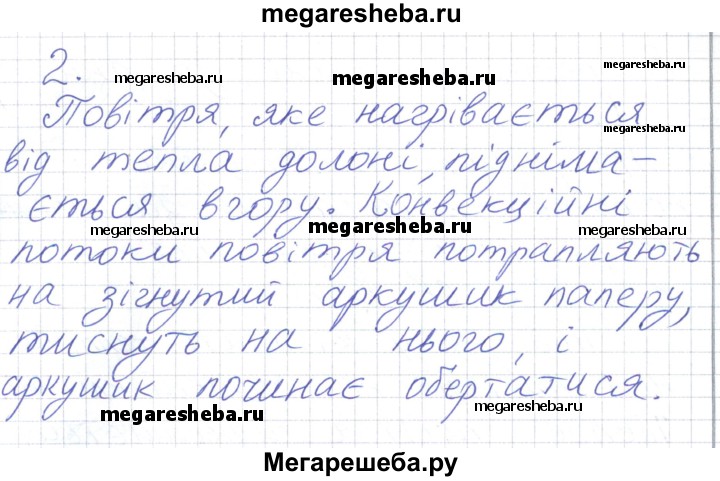 megaresheba.ru
2.
megaresheba.ru megaresheba.ru megaresheba.ru
Повітря, яке нагрівається
megaresheba.ru
від тепла долоні, підніма-
ється вгору. Конвекційні
megaresheba.ru megaresheba.ru
потоки повітря потрапляють
на зігнутий аркушик паперу,
тиснуть на нього, і
аркушик починає обертатися.
megaresheba.ru megaresheba.ru
Мегарешеба.ру